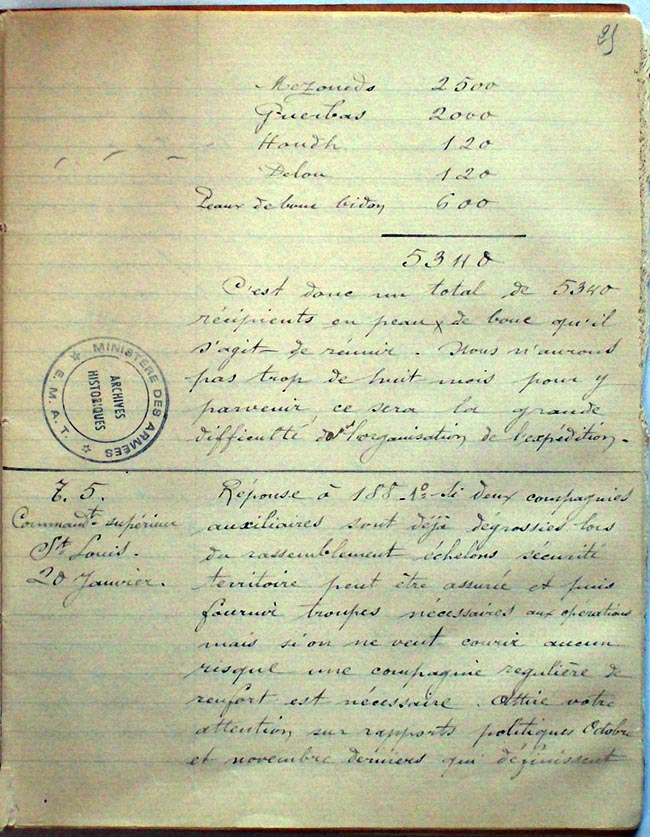 25
Mezoueds 2500
Guerbas 2000
Houdh 120
Delou 120
Peaux de bouc bidon 600
5340
C'est donc un total de 5340
récipients en peaux de bouc qu'il
s'agit de réunir. Nous n'aurons
pas trop de huit mois pour y
parvenir ce sera la grande
difficulté de l'organisation de l'expédition.
MINISTÈRE DES ARMÉES
☆ E. M. A. T. ☆
ARCHIVES
HISTORIQUES
T. 5.
Commandt supérieur
St Louis.
20 Janvier.
Réponse à 188-1o- Si deux compagnies
auxiliaires sont déjà dégrossies lors
du rassemblement échelons sécurité
territoire peut être assurée et puis
fournir troupes nécessaires aux operations
mais si on ne veut courir aucun
risque une compagnie regulière de
renfort est nécessaire. Attire votre
attention sur rapports politiques Octobre
et novembre derniers qui définissent